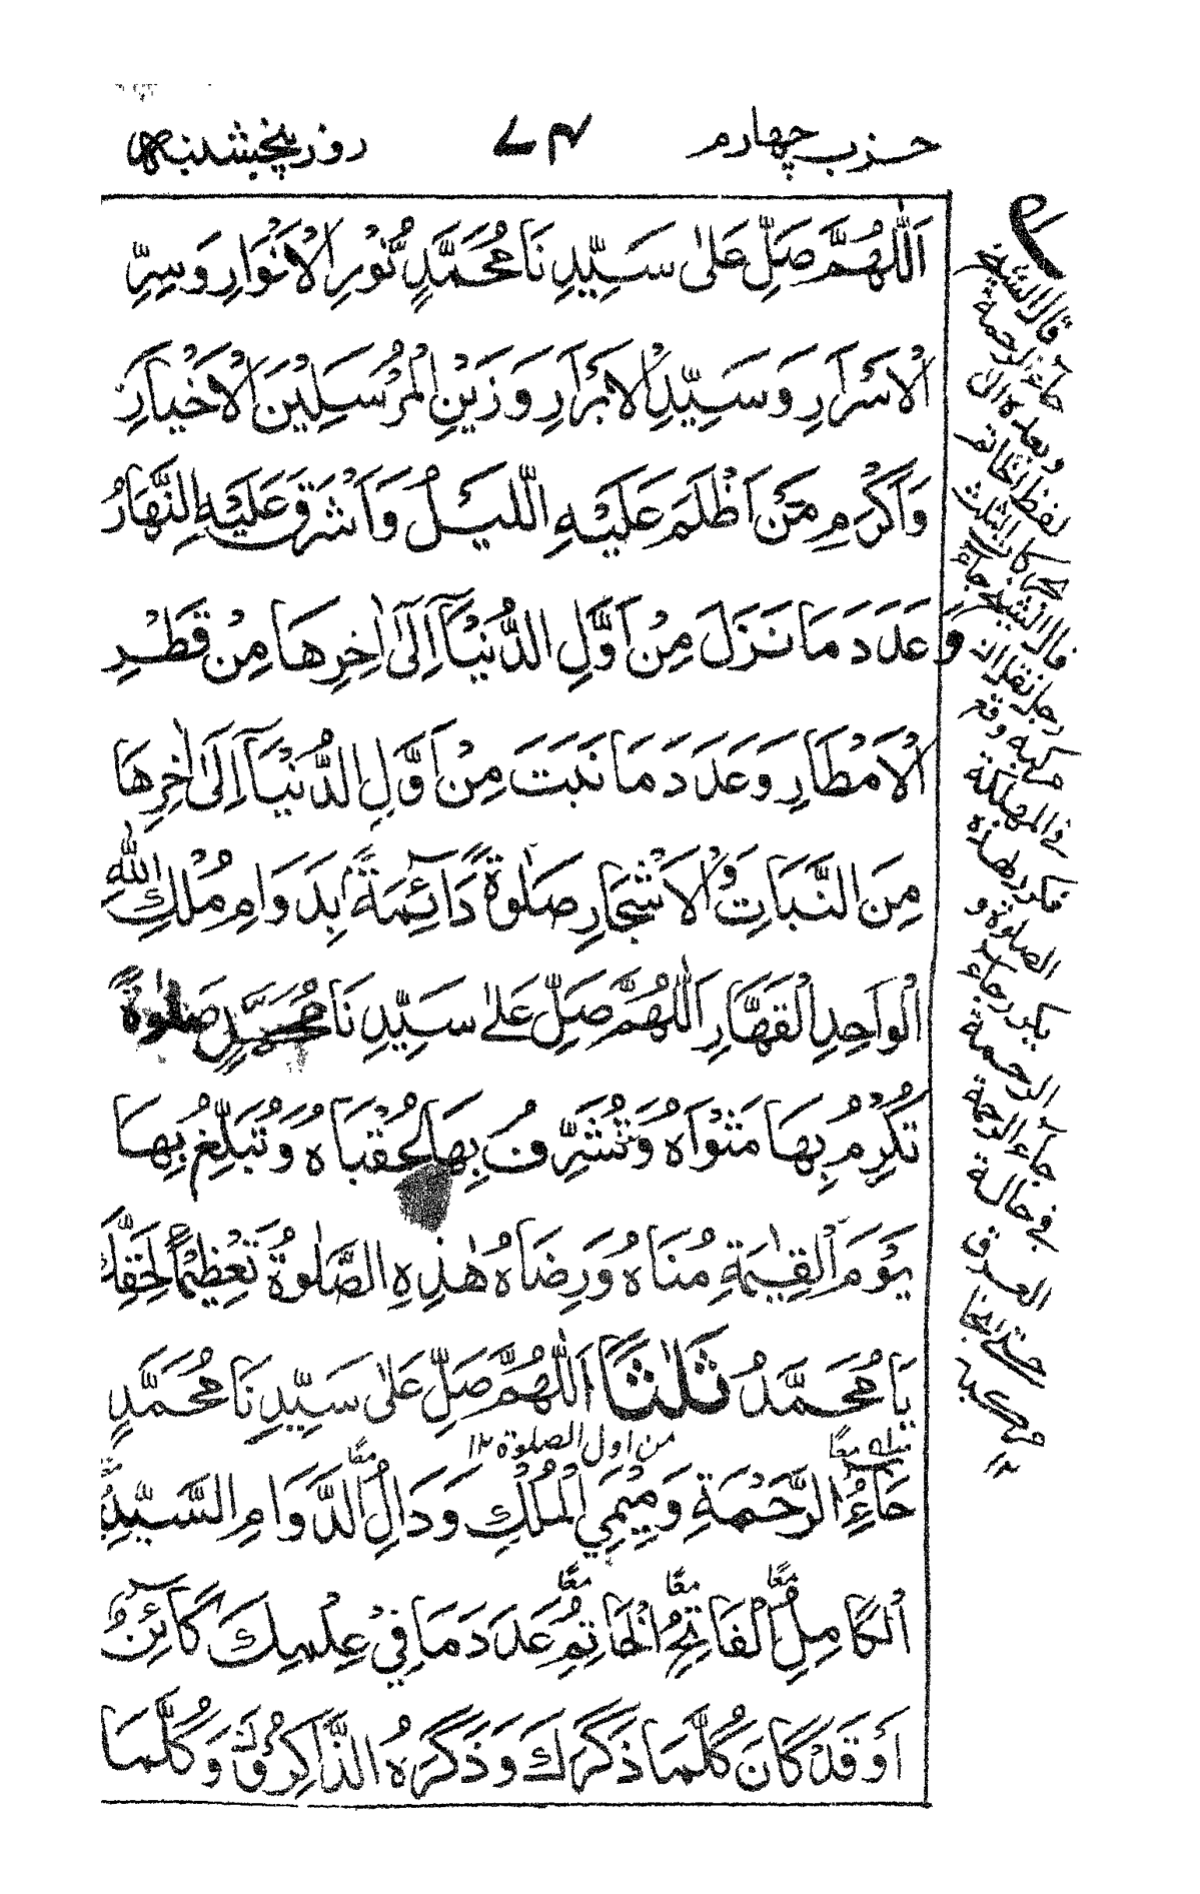 حزب چهارم ۷۴ روز پنجشنبه
اَللّٰهُمَّ صَلِّ عَلٰى سَيِّدِنَا مُحَمَّدٍ نُّوْرِ الْاَنْوَارِ وَسِرِّ
الْاَسْرَارِ وَسَيِّدِ الْاَبْرَارِ وَزَيْنِ الْمُرْسَلِيْنَ الْاَخْيَارِ
وَاَكْرَمِ مَنْ اَظْلَمَ عَلَيْهِ اللَّيْلُ وَاَشْرَقَ عَلَيْهِ النَّهَارُ
وَعَدَدَ مَا نَزَلَ مِنْ اَوَّلِ الدُّنْيَآ اِلٰٓى اٰخِرِهَا مِنْ قَطْرِ
الْاَمْطَارِ وَعَدَدَ مَا نَبَتَ مِنْ اَوَّلِ الدُّنْيَآ اِلَىٰ اٰخِرِهَا
مِنَ النَّبَاتِ وَالْاَشْجَارِ صَلٰوةً دَآئِمَةً بِدَوَامِ مُلْكِ اللّٰهِ
الْوَاحِدِ الْقَهَّارِ اَللّٰهُمَّ صَلِّ عَلٰى سَيِّدِنَا مُحَمَّدٍ صَلٰوةً
تُكْرِمُ بِهَا مَثْوَاهُ وَتُشَرِّفُ بِهَا عُقْبَاهُ وَتُبَلِّغُ بِهَا
يَوْمَ الْقِيٰمَةِ مُنَاهُ وَرِضَاهُ هٰذِهِ الصَّلٰوةُ تَعْظِيْمًا لِحَقِّكَ
يَا مُحَمَّدُ ثَلٰثًا اَللّٰهُمَّ صَلِّ عَلٰى سَيِّدِنَا مُحَمَّدٍ
من اول الصلوة ۱۲
حَآءُ الرَّحْمَةِ وَمِيْمَيِ الْمُلْكِ وَدَالُ الدَّوَامِ السَّيِّدُ
معًا معًا معًا
الْكَامِلُ الْفَاتِحُ الْخَاتِمُ عَدَدَ مَا فِيْ عِلْمِكَ كَآئِنٌ
اَوْ قَدْ كَانَ كُلَّمَا ذَكَرَكَ وَذَكَرَهُ الذَّاكِرُوْنَ وَكُلَّمَا
قال الشيخ
حاء الرحمة
وبعده الى
لفظ الخاتم
الثلث
قال الشيخ
رجل نقل ان
مركبه وقع
فى المهلكة
فكرر هذه
الصلوة و
يكرر حاء
الرحمة
حاء الرحمة
فى حالة
الغرق
حتى نجا
مركبه ۱۲